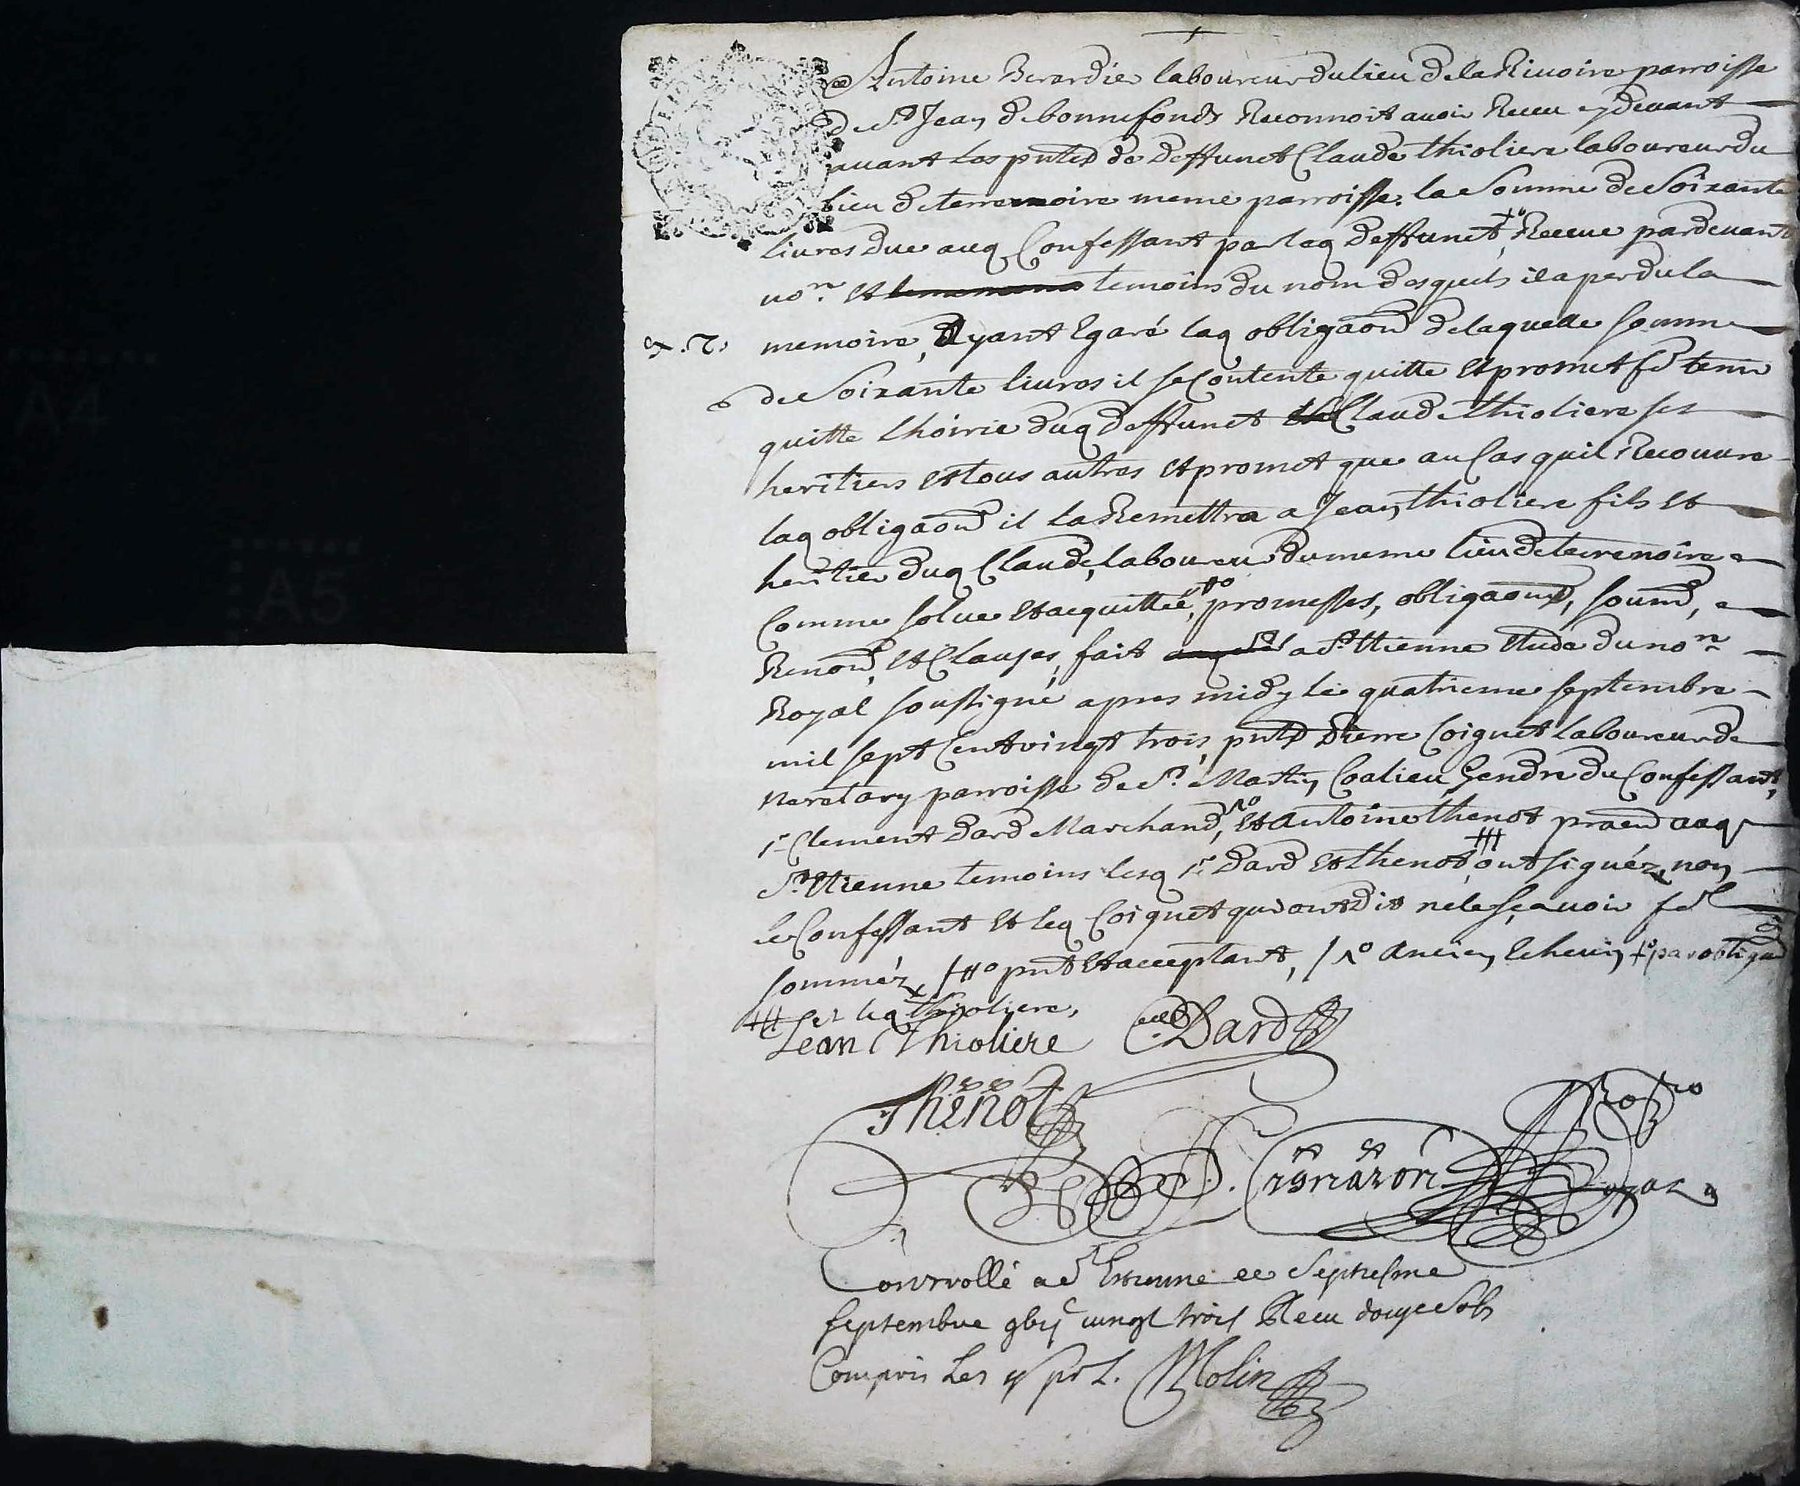 Antoine Berardier laboureur du lieu de la Rivoire parroisse
de St Jean de bonnefonds Reconnoit avoir Receu cy devant
avant les pntes de deffunct Claude thioliere laboureur du
lieu de terrenoire meme parroisse, la somme de soixante
livres due auq Confessant par leq deffunct, +o Receue pardevant
nore et temoins du nom desquels il a perdu la
memoire, Ayant Egaré laq obligaon de laquelle somme
de soixante livres il se Contente quitte et promet fe tenir
quitte l'hoirie duq deffunct Claude thioliere ses
heritiers et tous autres et promet que au Cas quil Recouvre
laq obligaon il la Remettra a Jean thioliere fils et
heritier duq Claude, laboureur du meme lieu de terrenoire
Comme solue et acquittée, promesses, obligaons, soums,
Renons, et Clauses, fait a St Etienne Etude du nore
Royal soussigné apres midy le quatrieme septembre
mil sept Cent vingt trois, pnts Pierre Coignet laboureur de
parroisse de St Martin Coalieu Gendre du Confessant,
sr Clement Dard Marchand, 1o et Antoine thenot praen auq
St Etienne temoins lesq sr Dard et thenot, ont signéz, non
le Confessant et leq Coignet qui ont dit ne le sçavoir fe
sommés, /++o pnt et acceptant, /1o Ancien Echevin +o par obligaon
+++ et leq thioliere,
Jean Thioliere Dard
Thenot
Royal
Controllé a St Etienne le septiesme
septembre gbijc vingt trois Receu douze sols
Compris les Molin